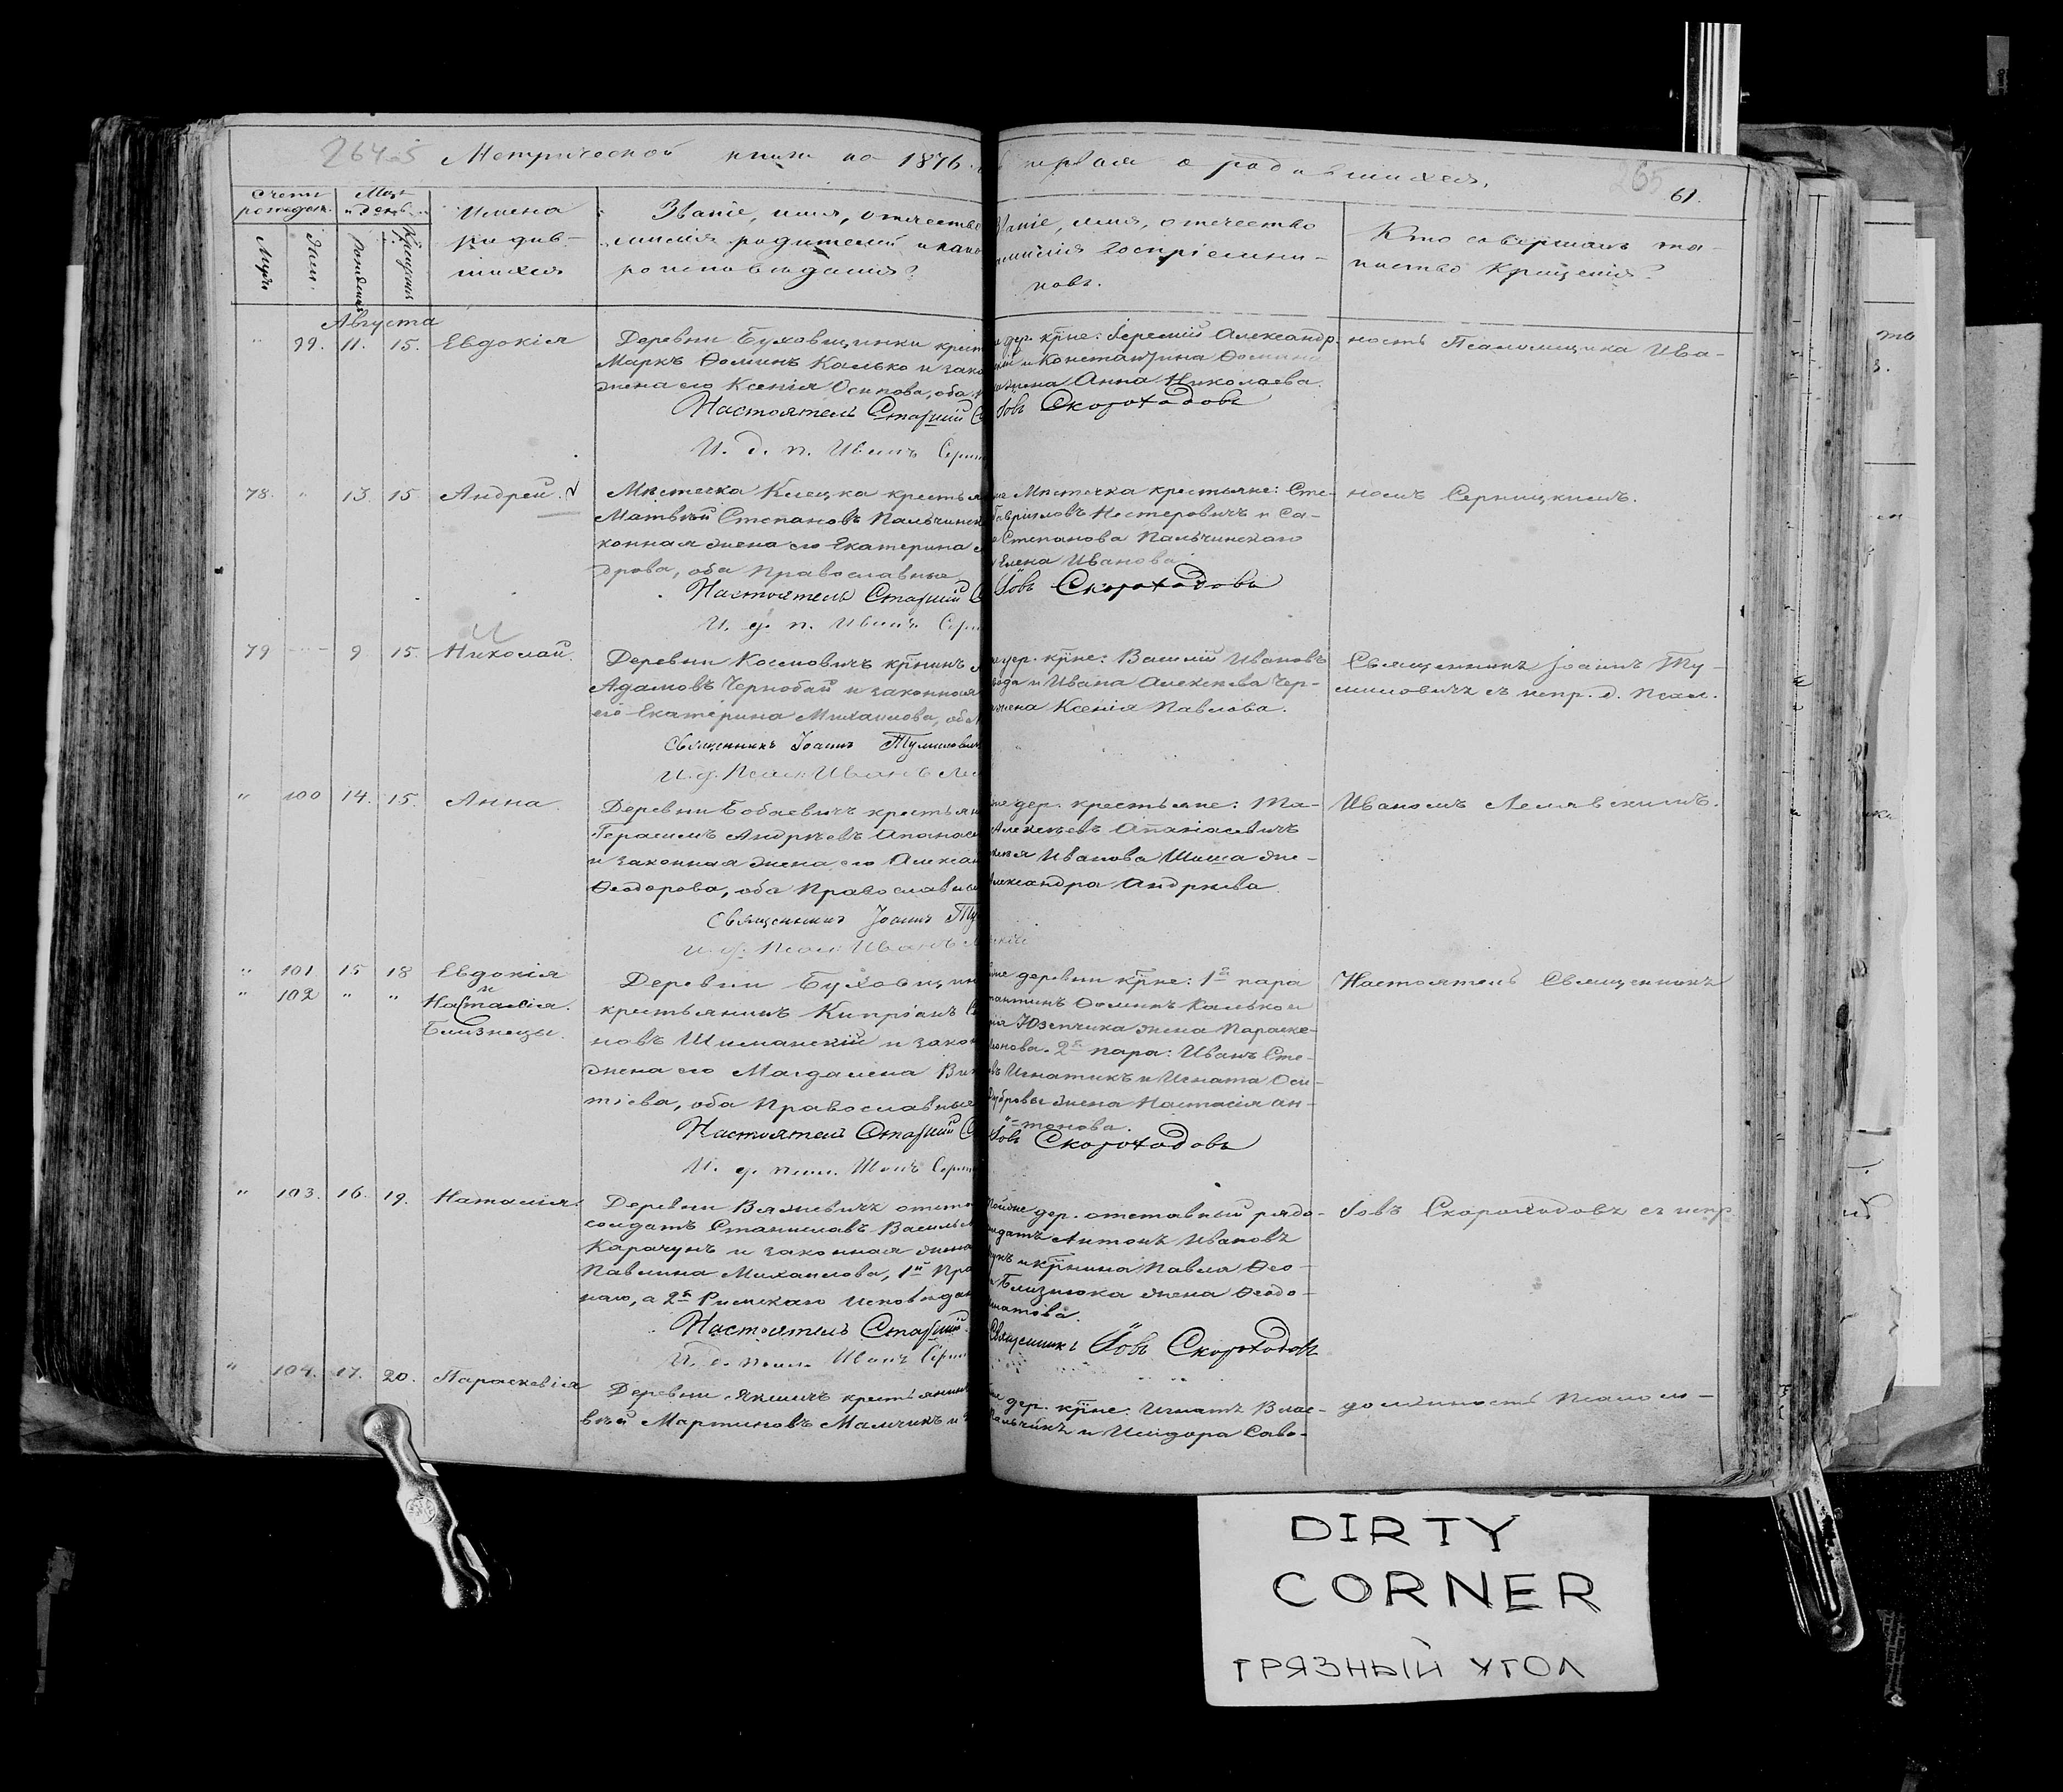 264 об Метрической книги на 1876. первая о родившихся.
265
61.
Счетъ рожден.
Муж.
Жен.
Мѣс. и день
Рожденія
Крещенія
Имена
родив-
шихся
Званіе, имя, отчество
милія родителей и како
роисповѣданія?
Званіе, имя, отчество
милія воспріемни-
ковъ.
Кто совершалъ та-
инство Крещенія?
Августа
" 99. 11. 15. Евдокія
Деревни Буховщинки крест
Маркъ Ѳоминъ Калько и зако
жена его Ксенія Осипова, оба
Настоятель Старшій С
И. д. п. Иванъ Серни
дер. кр̃не: Іеремій Александр
и Константина Ѳомина
жена Анна Николаева.
Іовъ Скороходовъ
ность Псаломщика Ива-
78. " 13. 15. Андрей.
Мѣстечка Клецка крестья
Матвѣй Степановъ Пальчинск
конная жена его Екатерина
дрова, оба Православные
Настоятель Старшій С
И. д. п. Иванъ Серн
Мѣстечка крестьяне: Сте-
Гавриловъ Нестеровичъ и Са-
Степанова Пальчинскаго
Елена Иванова
Іовъ Скороходовъ
номъ Серницкимъ.
79 9 15. Николай.
Деревни Космовичъ кр̃нинъ
Адамовъ Чернобай и законная
его Екатерина Михаилова, оба
Священникъ Іоаннъ Тумилович
И. д. Псал. Иванъ Ле
дер. кр̃не: Василій Ивановъ
и Ивана Алексѣева Чер-
жена Ксенія Павлова.
Священникъ Іоаннъ Ту-
миловичъ съ испр. д. Псал.
" 100 14. 15. Анна.
Деревни Бобаевичъ крестьян
Герасимъ Андреевъ Апанас
и законная жена его Алексан
Ѳеодорова, оба Православны
Священникъ Іоаннъ Ту
И. д. Псал: Иванъ
дер. крестьяне: Ма-
Алексѣевъ Апанасевичъ
Иванова Шиша же-
Александра Андреева.
Иваномъ Лемявскимъ.
" 101 15 18 Евдокія
и
" 102 " " Настасія.
Близнецы.
Деревни Буховщин
крестьянинъ Кипріанъ
новъ Шиманскій и закон
жена его Магдалена Вик
тіева, оба Православные
Настоятель Старшій С
И. д. псал. Иванъ Серн
деревни кр̃не: 1я пара
Ѳоминъ Калько и
Юзепчика жена Параске-
2я пара: Иванъ Сте-
Игнатикъ и Игната Оси-
Дубровы жена Настасія Ан-
тонова.
Іовъ Скороходовъ
Настоятель Священникъ
" 103. 16. 19. Наталія.
Деревни Вязневичъ отста
солдатъ Станиславъ Васильев
Карачунъ и законная жена
Павлина Михаилова, 1й Пра
наго, а 2я Римскаго Исповѣдан
Настоятель Старшій
И. д. псал. Иванъ Серн
дер. отставный рядо-
Антонъ Ивановъ
и кр̃нина Павла Ѳео-
Близнюка жена Ѳеодо-
Священникъ Іовъ Скороходовъ
Іовъ Скороходовъ съ испр
" 104. 17. 20. Параскевія
Деревни Якшичъ крестьянинъ
вѣй Мартиновъ Мальчикъ и
дер. кр̃не: Игнатъ Влас-
Мальчикъ и Исидора Саво-
должность Псалом-
DIRTY
CORNER
ГРЯЗНЫЙ УГОЛ